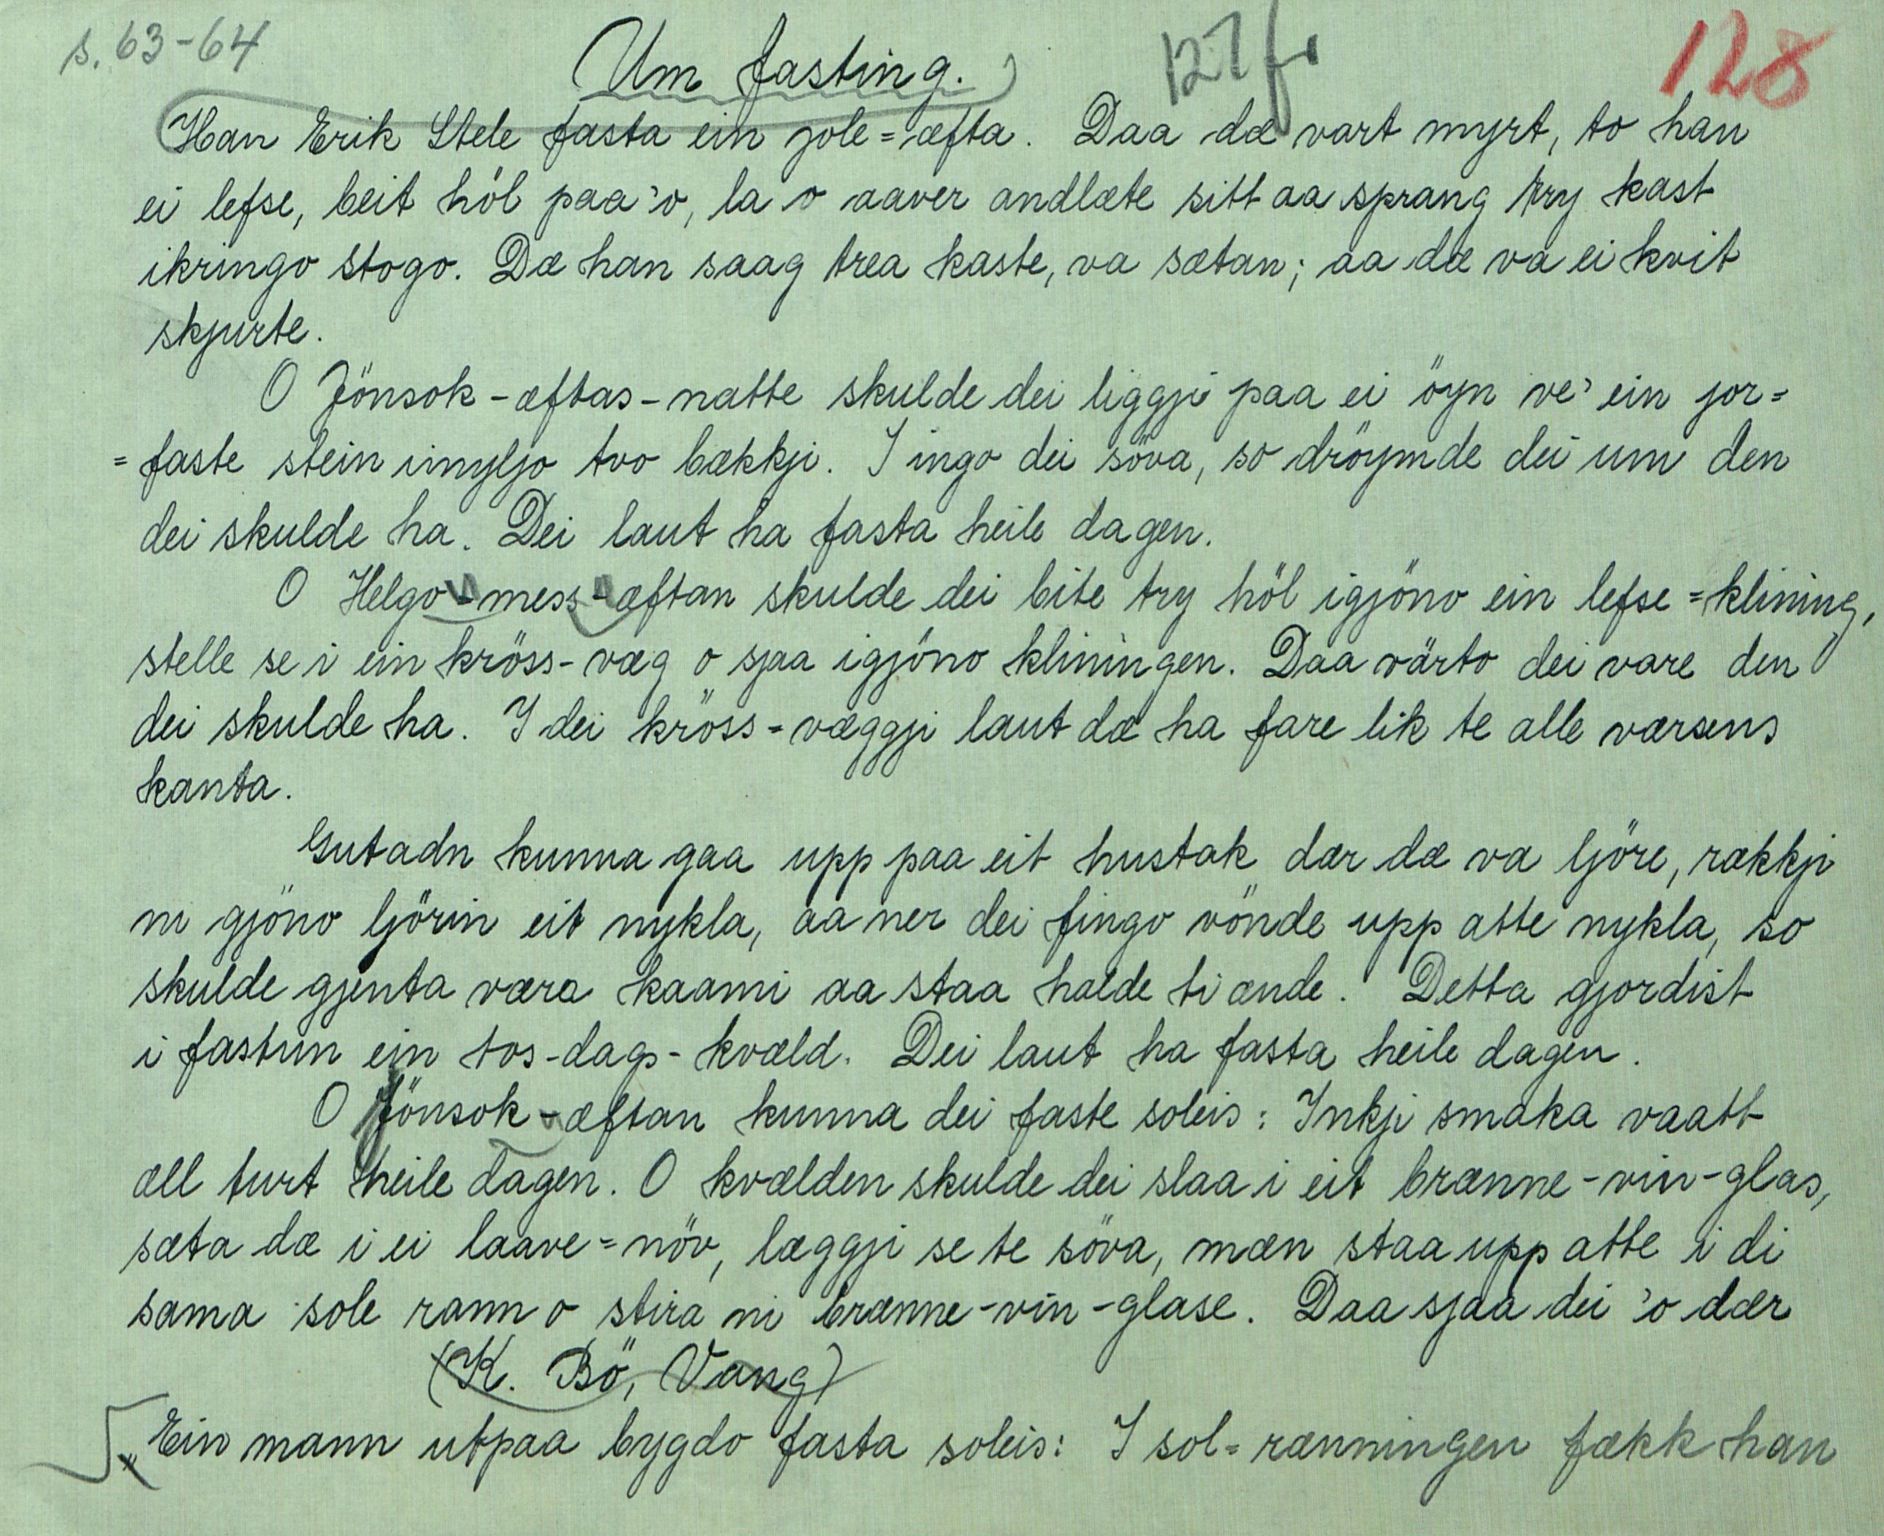 s. 63-64
127 fr
128
Um fasting.
Han Erik Stele fasta ein jole=æfta. Daa dæ vart myrt, to han
ei lefse, beit höl paa 'o, la o aaver andlæte sitt aa sprang try kast
ikringo stogo. Dæ han saag trea kaste, va sætan; aa dæ va ei kvit
skjurte.
O Jönsok-æftas-natte skulde dei liggji paa ei öyn ve' ein jor=
=faste stein imyljo tvo bækkji. I ingo dei söva, so dröymde dei um den
dei skulde ha. Dei laut ha fasta heile dagen.
O Helgo-mess-æftan skulde dei bite try höl igjöno ein lefse=klining,
stelle se i ein kröss-væg o sjaa igjöno kliningen. Daa värto dei vare den
dei skulde ha. I dei kröss-væggji laut dæ ha fare lik te alle værsens
kanta.
Gutadn kunna gaa upp paa eit hustak dær dæ va ljöre, rækkji
ni gjöno ljörin eit nykla, aa ner dei fingo vönde upp atte nykla, so
skulde gjenta væra kaami aa staa halde ti ænde. Detta gjordist
i fastun ein tos-dags-kvæld. Dei laut ha fasta heile dagen.
O Jönsok-æftan kunna dei faste soleis: Inkji smaka vaatt
æll turt heile dagen. O kvælden skulde dei slaa i eit brænne-vin-glas,
sæta dæ i ei laave=növ, læggji se te söva, mæn staa upp atte i di
sama sole rann o stira ni brænne-vin-glase. Daa sjaa dei 'o dær
(K. Bö, Vang)
„Ein mann utpaa bygdo fasta soleis: I sol=rænningen fækk han